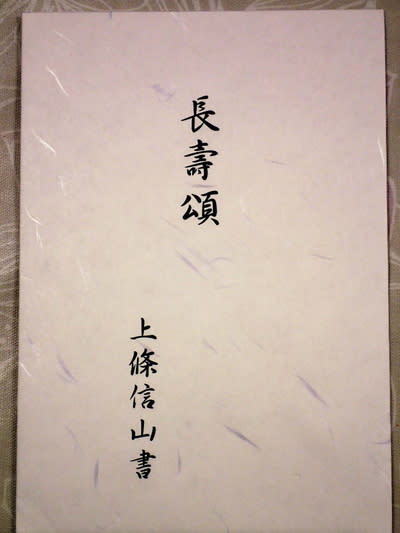 長壽頌
上條信山書